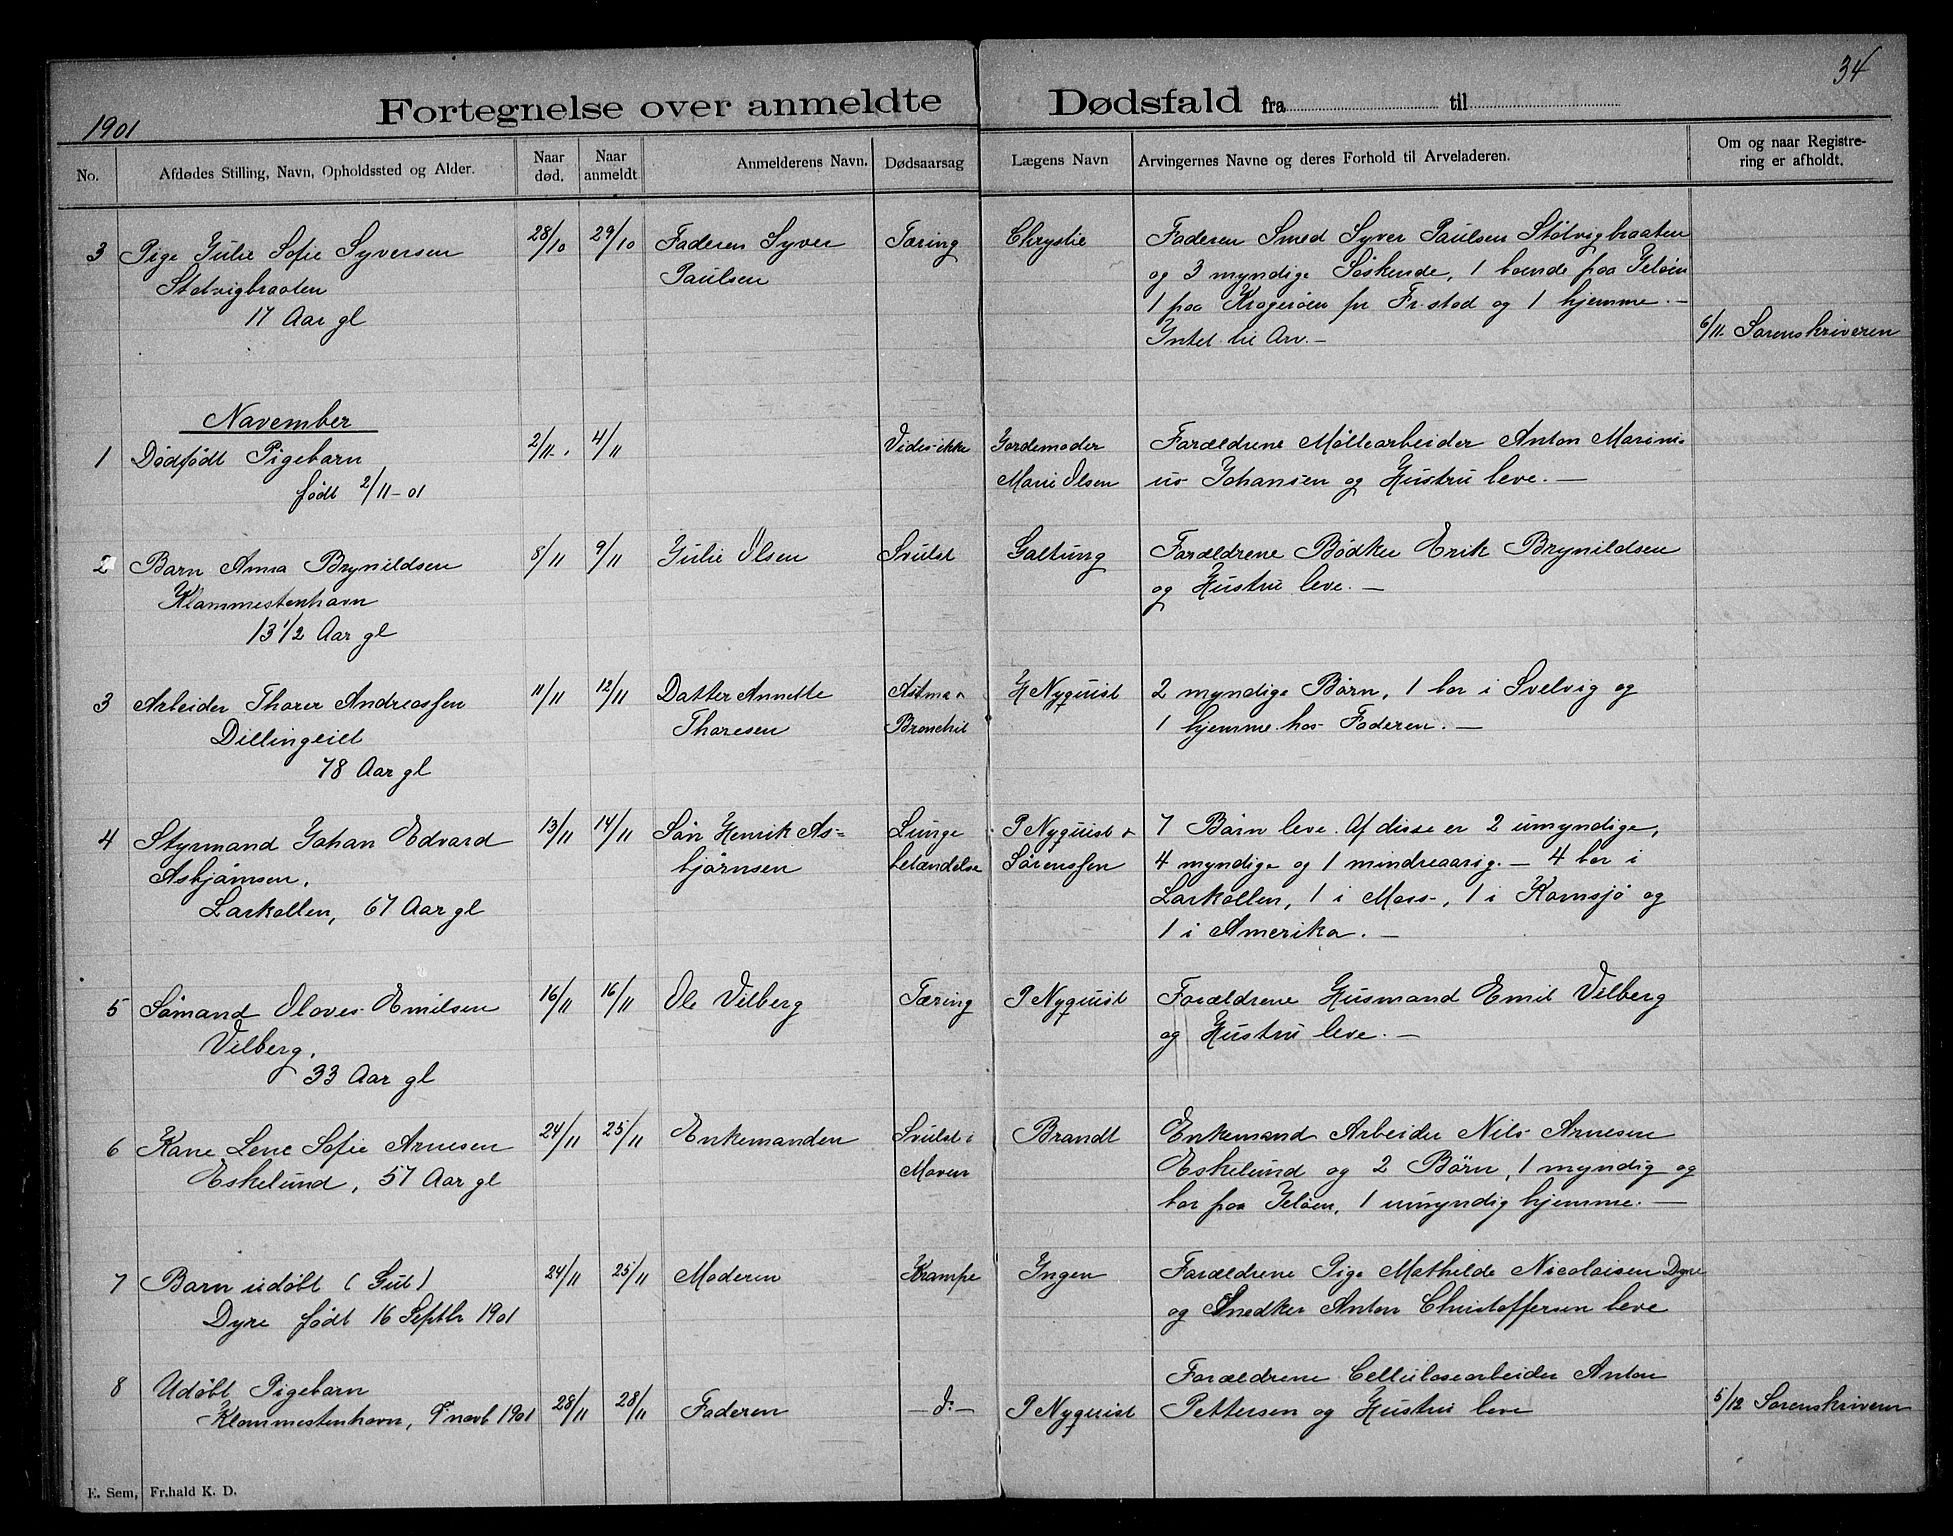 34
Fortegnelse over anmeldte Dødsfald fra til
1901
No.
Afdødes Stilling, Navn, Opholdssted og Alder.
Naar død.
Naar anmeldt.
Anmelderens Navn.
Dødsaarsag
Lægens Navn
Arvingernes Navne og deres Forhold til Arveladeren.
Om og naar Registre-
ring er afholdt.
3 Pige Julie Sofie Syversen
Støtvigbraaten
17 Aar gl
28/10 29/10
Faderen Syver
Paulsen
Tæring
Chrystie
Faderen Smed Syver Paulsen Støtvigbraaten
og 3 myndige Søskende, 1 boende paa Jeløen
1 paa Kragerøen pr Fr.stad og 1 hjemme. —
Intet til Arv. —
6/11 Sorenskriveren
November
1 Dødfødt Pigebarn
født 2/11-01
2/11 4/11
Vides ikke
Jordemoder
Marie Olsen
Forældrene Møllearbeider Anton Marini-
us Johansen og Hustru leve. —
2 Barn Anna Brynildsen
Klommestenhavn
13 1/2 Aar gl
8/11 9/11
Julie Olsen
Svulst
Galtung
Forældrene Bødker Erik Brynildsen
og Hustru leve. —
3 Arbeider Thorer Andreassen
Dillingeiet
78 Aar gl
11/11 12/11
Datter Annette
Thoresen
Astma
Bronchit
H Nyquist
2 myndige Børn, 1 bor i Svelvig og
1 hjemme hos Faderen. —
4 Styrmand Johan Edvard
Asbjørnsen,
Larkollen, 67 Aar gl
13/11 14/11
Søn Henrik As=
bjørnsen
Lunge
betændelse
P Nyquist &
Sørenssen
7 Børn leve. Af disse er 2 umyndige,
4 myndige og 1 mindreaarig. — 4 bor i
Larkollen, 1 i Moss, 1 i Kornsjø og
1 i Amerika. —
5 Sømand Olaves Emilsen
Vilberg,
33 Aar gl
16/11 16/11
Ole Vilberg
Tæring
P Nyquist
Forældrene Husmand Emil Vilberg
og Hustru leve. —
6 Kone Lene Sofie Arnesen
Eskelund, 57 Aar gl
24/11 25/11
Enkemanden
Svulst i
Maven
Brandt
Enkemand Arbeider Nils Arnesen
Eskelund og 2 Børn, 1 myndig og
bor paa Jeløen, 1 umyndig hjemme. —
7 Barn udøbt (Gut)
Dyre født 16 Septbr 1901
24/11 25/11
Moderen
Krampe
Ingen
Forældrene Pige Mathilde Nicolaisen Dyre
og Snedker Anton Christoffersen leve
8 Udøbt Pigebarn
Klommestenhavn, 9 novb 1901
28/11 28/11
Faderen
— d: —
P Nyquist
Forældrene Cellulosearbeider Anton
Pettersen og Hustru leve
5/12 Sorenskriveren
E. Sem, Fr.hald K. D.